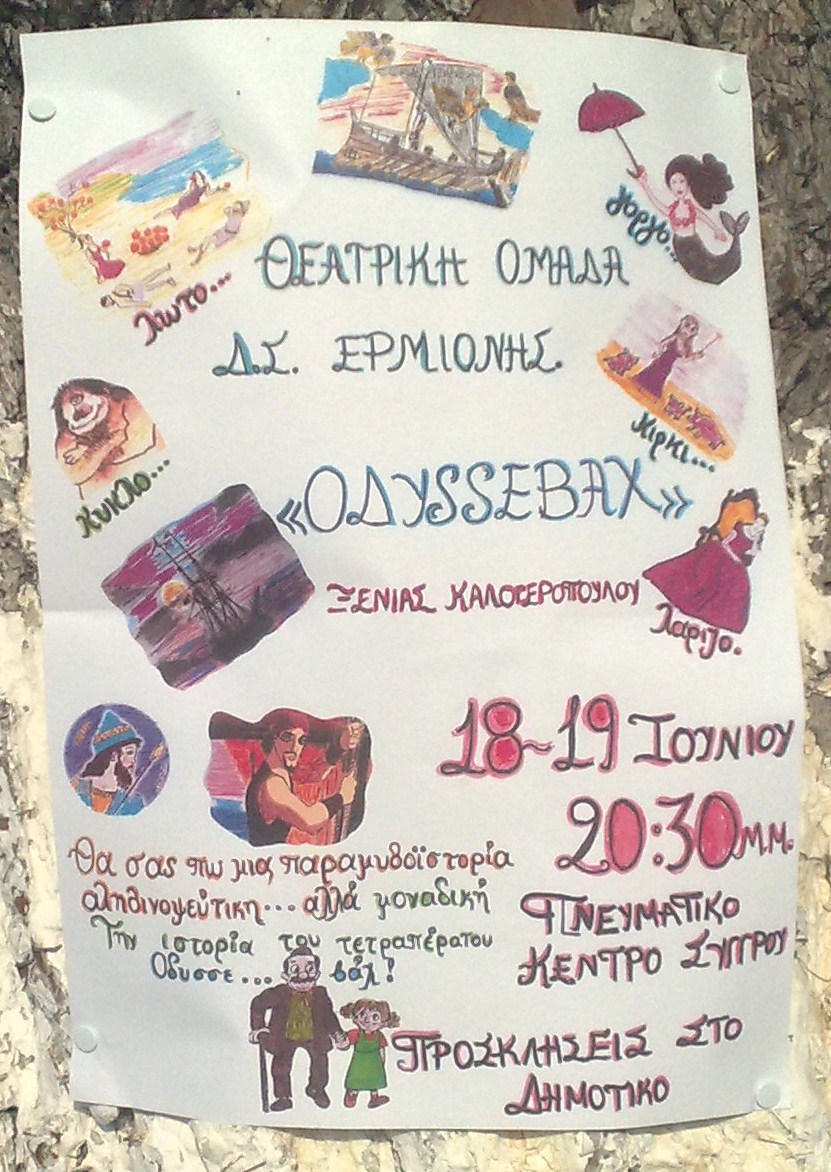 γοργο...
λωτο...
ΘΕΑΤΡΙΚΗ ΟΜΑΔΑ
Δ.Σ. ΕΡΜΙΟΝΗΣ.
κιρκι...
κυκλο...
«ΟΔΥSSEBAX»
ΞΕΝΙΑΣ ΚΑΛΟΓΕΡΟΠΟΥΛΟΥ
λαριζο.
18-19 ΙΟΥΝΙΟΥ
20:30 Μ.Μ.
Θα σας πω μια παραμυθοϊστορία
αληθινοψεύτικη... αλλά μοναδική
Την ιστορία του τετραπέρατου
Οδυσσε... βάχ!
ΠΝΕΥΜΑΤΙΚΟ
ΚΕΝΤΡΟ ΣΥΓΓΡΟΥ
ΠΡΟΣΚΛΗΣΕΙΣ ΣΤΟ
ΔΗΜΟΤΙΚΟ